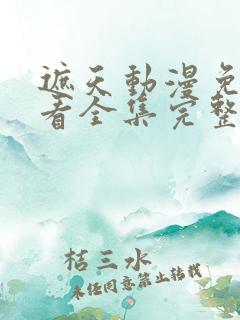 遮天動漫免
看全集完整
桔三水
未任同意禁止转载